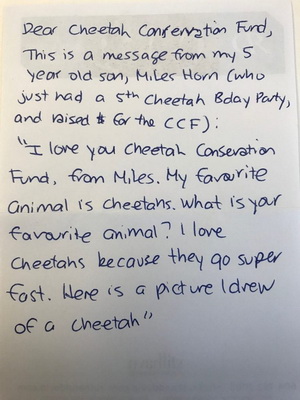 Dear Cheetah Conservation Fund,
This is a message from my 5
year old son, Miles Horn (who
just had a 5th Cheetah Bday Party,
and raised $ for the CCF):
"I love you Cheetah Conservation
Fund, from Miles. My favourite
animal is cheetahs. What is your
favourite animal? I love
cheetahs because they go super
fast. Here is a picture I drew
of a cheetah"